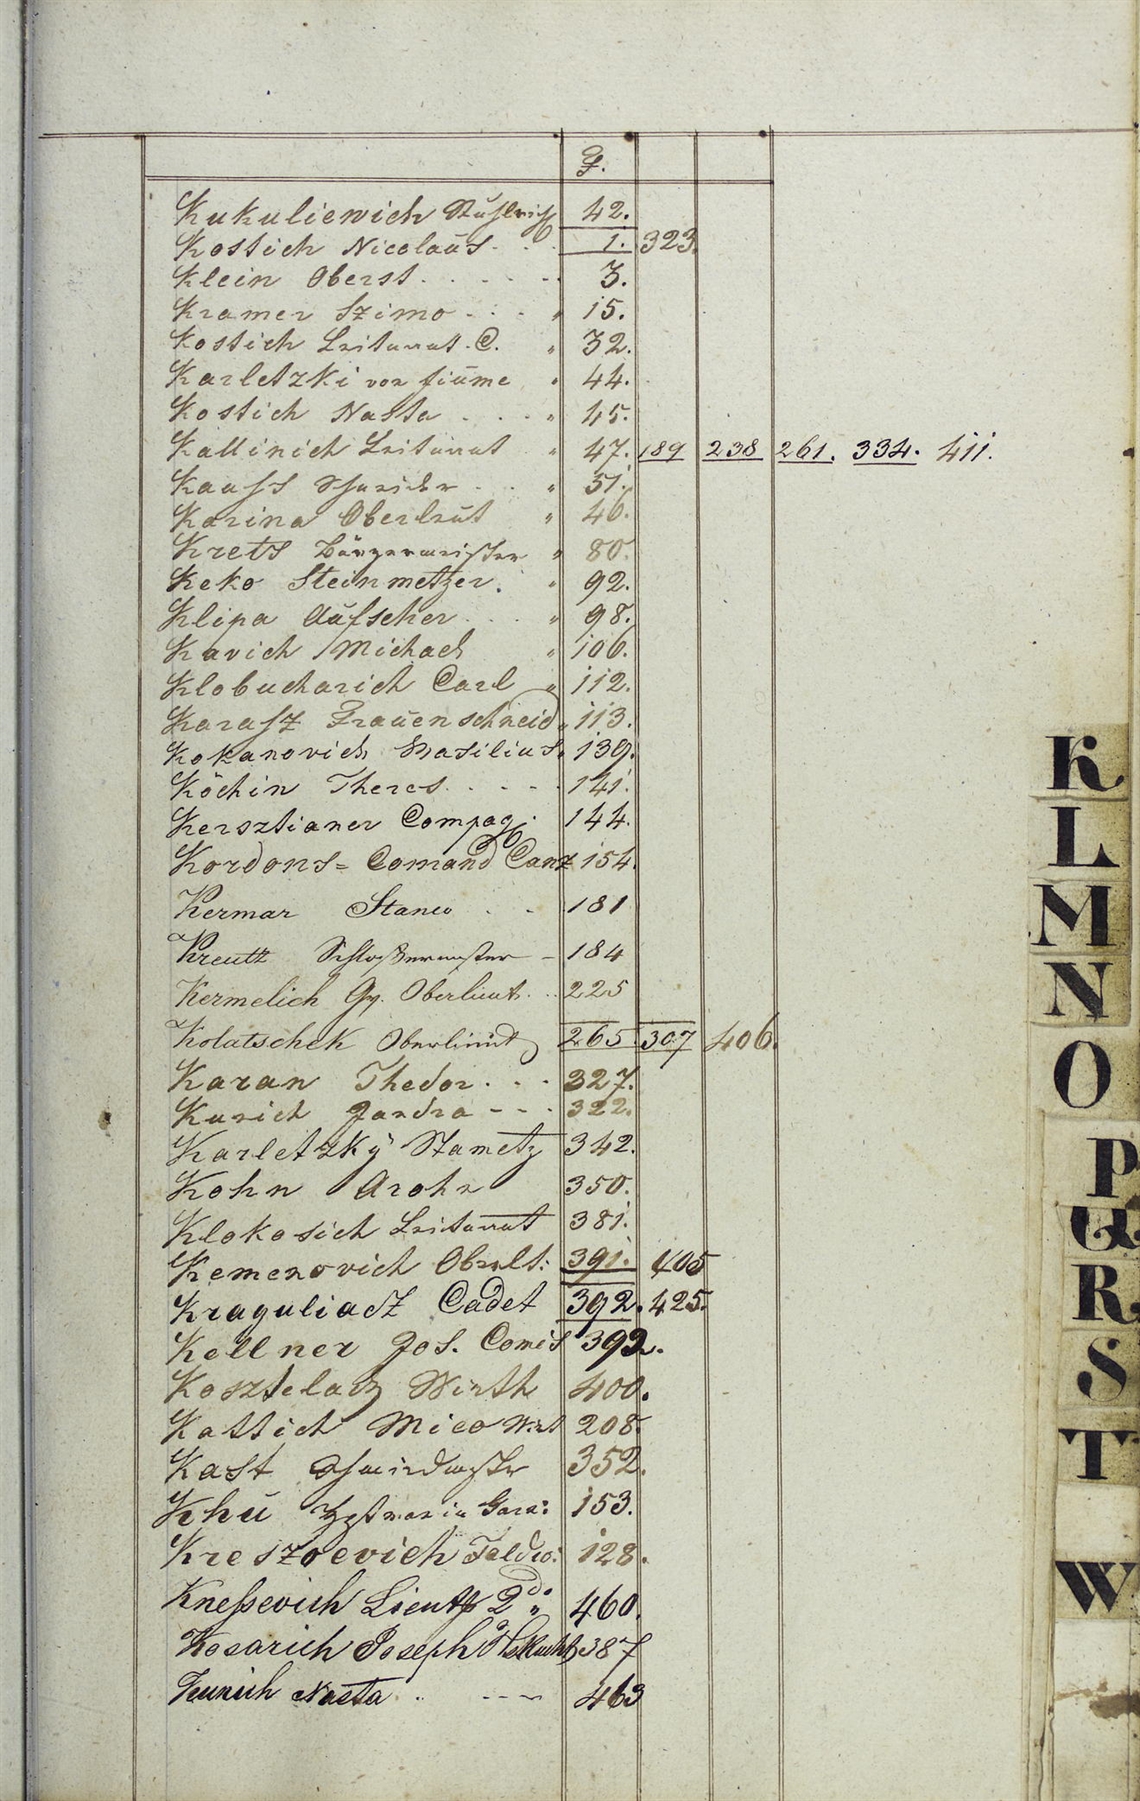 F.
Kukulievich Stuhlrich 42.
Kostich Nicolaus . . . 1. 323.
Klein Oberst . . . . . . 3.
Kramer Szimo . . . " 15.
Kostich Leitenant C. " 32.
Karletzki von Fiume " 44.
Kostich Nasta . . . . " 45.
Kallinich Leitenant " 47. 189 238 261. 334. 411.
Kaass Schneider . . " 51.
Karina Oberleut " 46.
Krets Bürgermeister " 80.
Keko Steinmetzer. " 92.
Klipa Aufseher . . . " 98.
Kavich Michael " 106.
Klobucharich Carl " 112.
Karasz Frauenschneid " 113.
Kokanovich Basilius. 139.
Köchin Theres . . . . . 141.
Kersztianer Compag . 144.
Kordons= Comand Canz 154.
Kermar Stanco . . 181
Kreutz Schloßermeister - 184
Kermelich Gg. Oberlieut. .. 225
Kolatschek Oberlieut 265 307 406.
Karan Thedor . . . 327.
Kurich Jandra - - . 322.
Karletzkÿ Stametz 342.
Kohn Arohn 350.
Klokosich Leitenant 381.
Kemenovich Oberlt: 391. 405
Kraguliacz Cadet 392. 425.
Kellner Jos. Comis 392.
Kosztelacz Wirth 400.
Kattich Mico Wirt 208.
Kast Schmidmeister 352.
Khü 153.
Kreszoevich Feldw: 128.
Kneßevich Lieut 2do " 460.
Kosarich Joseph 387
Nasta .. --- 463
K
L
M
N
O
P
Q
R
S
T
W